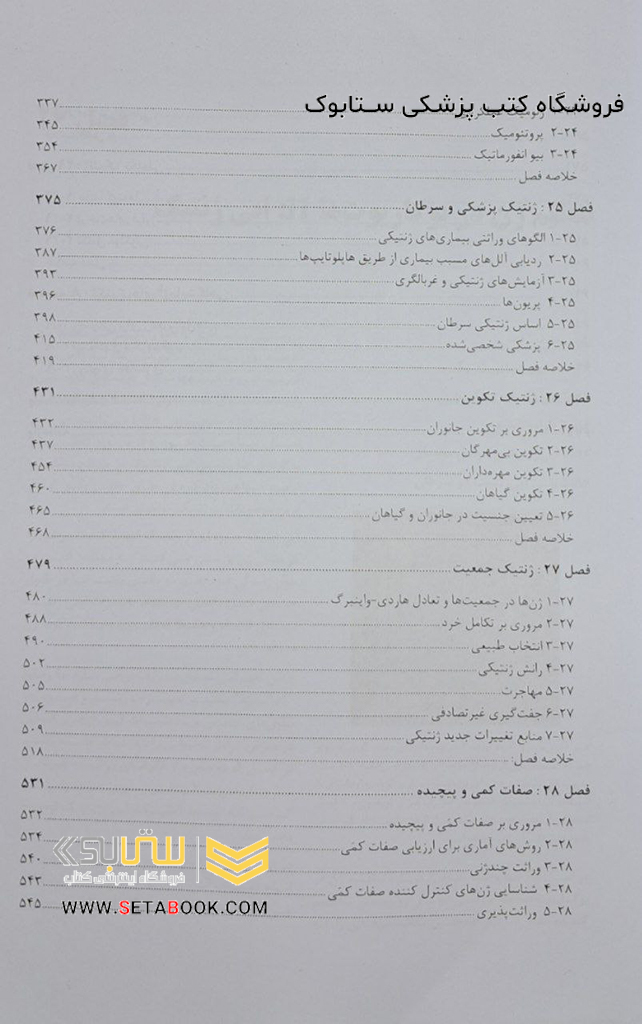 فروشگاه کتب پزشکی ستابوک
۳۳۷
۲-۲۴ پروتئومیک ۳۴۵
۳-۲۴ بیو انفورماتیک ۳۵۴
خلاصه فصل ۳۶۷
فصل ۲۵ : ژنتیک پزشکی و سرطان ۳۷۵
۱-۲۵ الگوهای وراثتی بیماری‌های ژنتیکی ۳۷۶
۲-۲۵ ردیابی آلل‌های مسبب بیماری از طریق هاپلوتایپ‌ها ۳۸۷
۳-۲۵ آزمایش‌های ژنتیکی و غربالگری ۳۹۳
۴-۲۵ پریون‌ها ۳۹۶
۵-۲۵ اساس ژنتیکی سرطان ۳۹۸
۶-۲۵ پزشکی شخصی‌شده ۴۱۵
خلاصه فصل ۴۱۹
فصل ۲۶ : ژنتیک تکوین ۴۳۱
۱-۲۶ مروری بر تکوین جانوران ۴۳۲
۲-۲۶ تکوین بی‌مهرگان ۴۳۷
۳-۲۶ تکوین مهره‌داران ۴۵۴
۴-۲۶ تکوین گیاهان ۴۶۰
۵-۲۶ تعیین جنسیت در جانوران و گیاهان ۴۶۵
خلاصه فصل ۴۶۸
فصل ۲۷ : ژنتیک جمعیت ۴۷۹
۱-۲۷ ژن‌ها در جمعیت‌ها و تعادل هاردی-واینبرگ ۴۸۰
۲-۲۷ مروری بر تکامل خرد ۴۸۸
۳-۲۷ انتخاب طبیعی ۴۹۰
۴-۲۷ رانش ژنتیکی ۵۰۲
۵-۲۷ مهاجرت ۵۰۵
۶-۲۷ جفت‌گیری غیرتصادفی ۵۰۶
۷-۲۷ منابع تغییرات جدید ژنتیکی ۵۰۹
خلاصه فصل: ۵۱۸
فصل ۲۸ : صفات کمی و پیچیده ۵۳۱
۱-۲۸ مروری بر صفات کمّی و پیچیده ۵۳۲
۲-۲۸ روش‌های آماری برای ارزیابی صفات کمّی ۵۳۴
۳-۲۸ وراثت چندژنی ۵۴۰
۴-۲۸ شناسایی ژن‌های کنترل کننده صفات کمّی ۵۴۳
۵-۲۸ وراثت‌پذیری ۵۴۵
ستابوک
فروشگاه اینترنتی کتاب
WWW.SETABOOK.COM